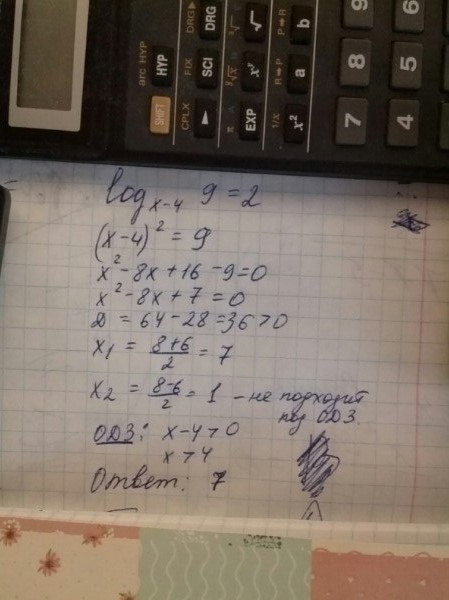 arc HYP
SHIFT HYP
CPLX FIX DRG▶
▶ SCI DRG
π ∛
EXP xʸ √
1/x R→P P→R
x² a b
7 8 9
4 5 6
log x-4 9 = 2
(x-4)² = 9
x² - 8x + 16 - 9 = 0
x² - 8x + 7 = 0
D = 64 - 28 = 36 > 0
x₁ = (8+6)/2 = 7
x₂ = (8-6)/2 = 1 - не подходит
под ОДЗ.
ОДЗ: x - 4 > 0
x > 4
Ответ: 7